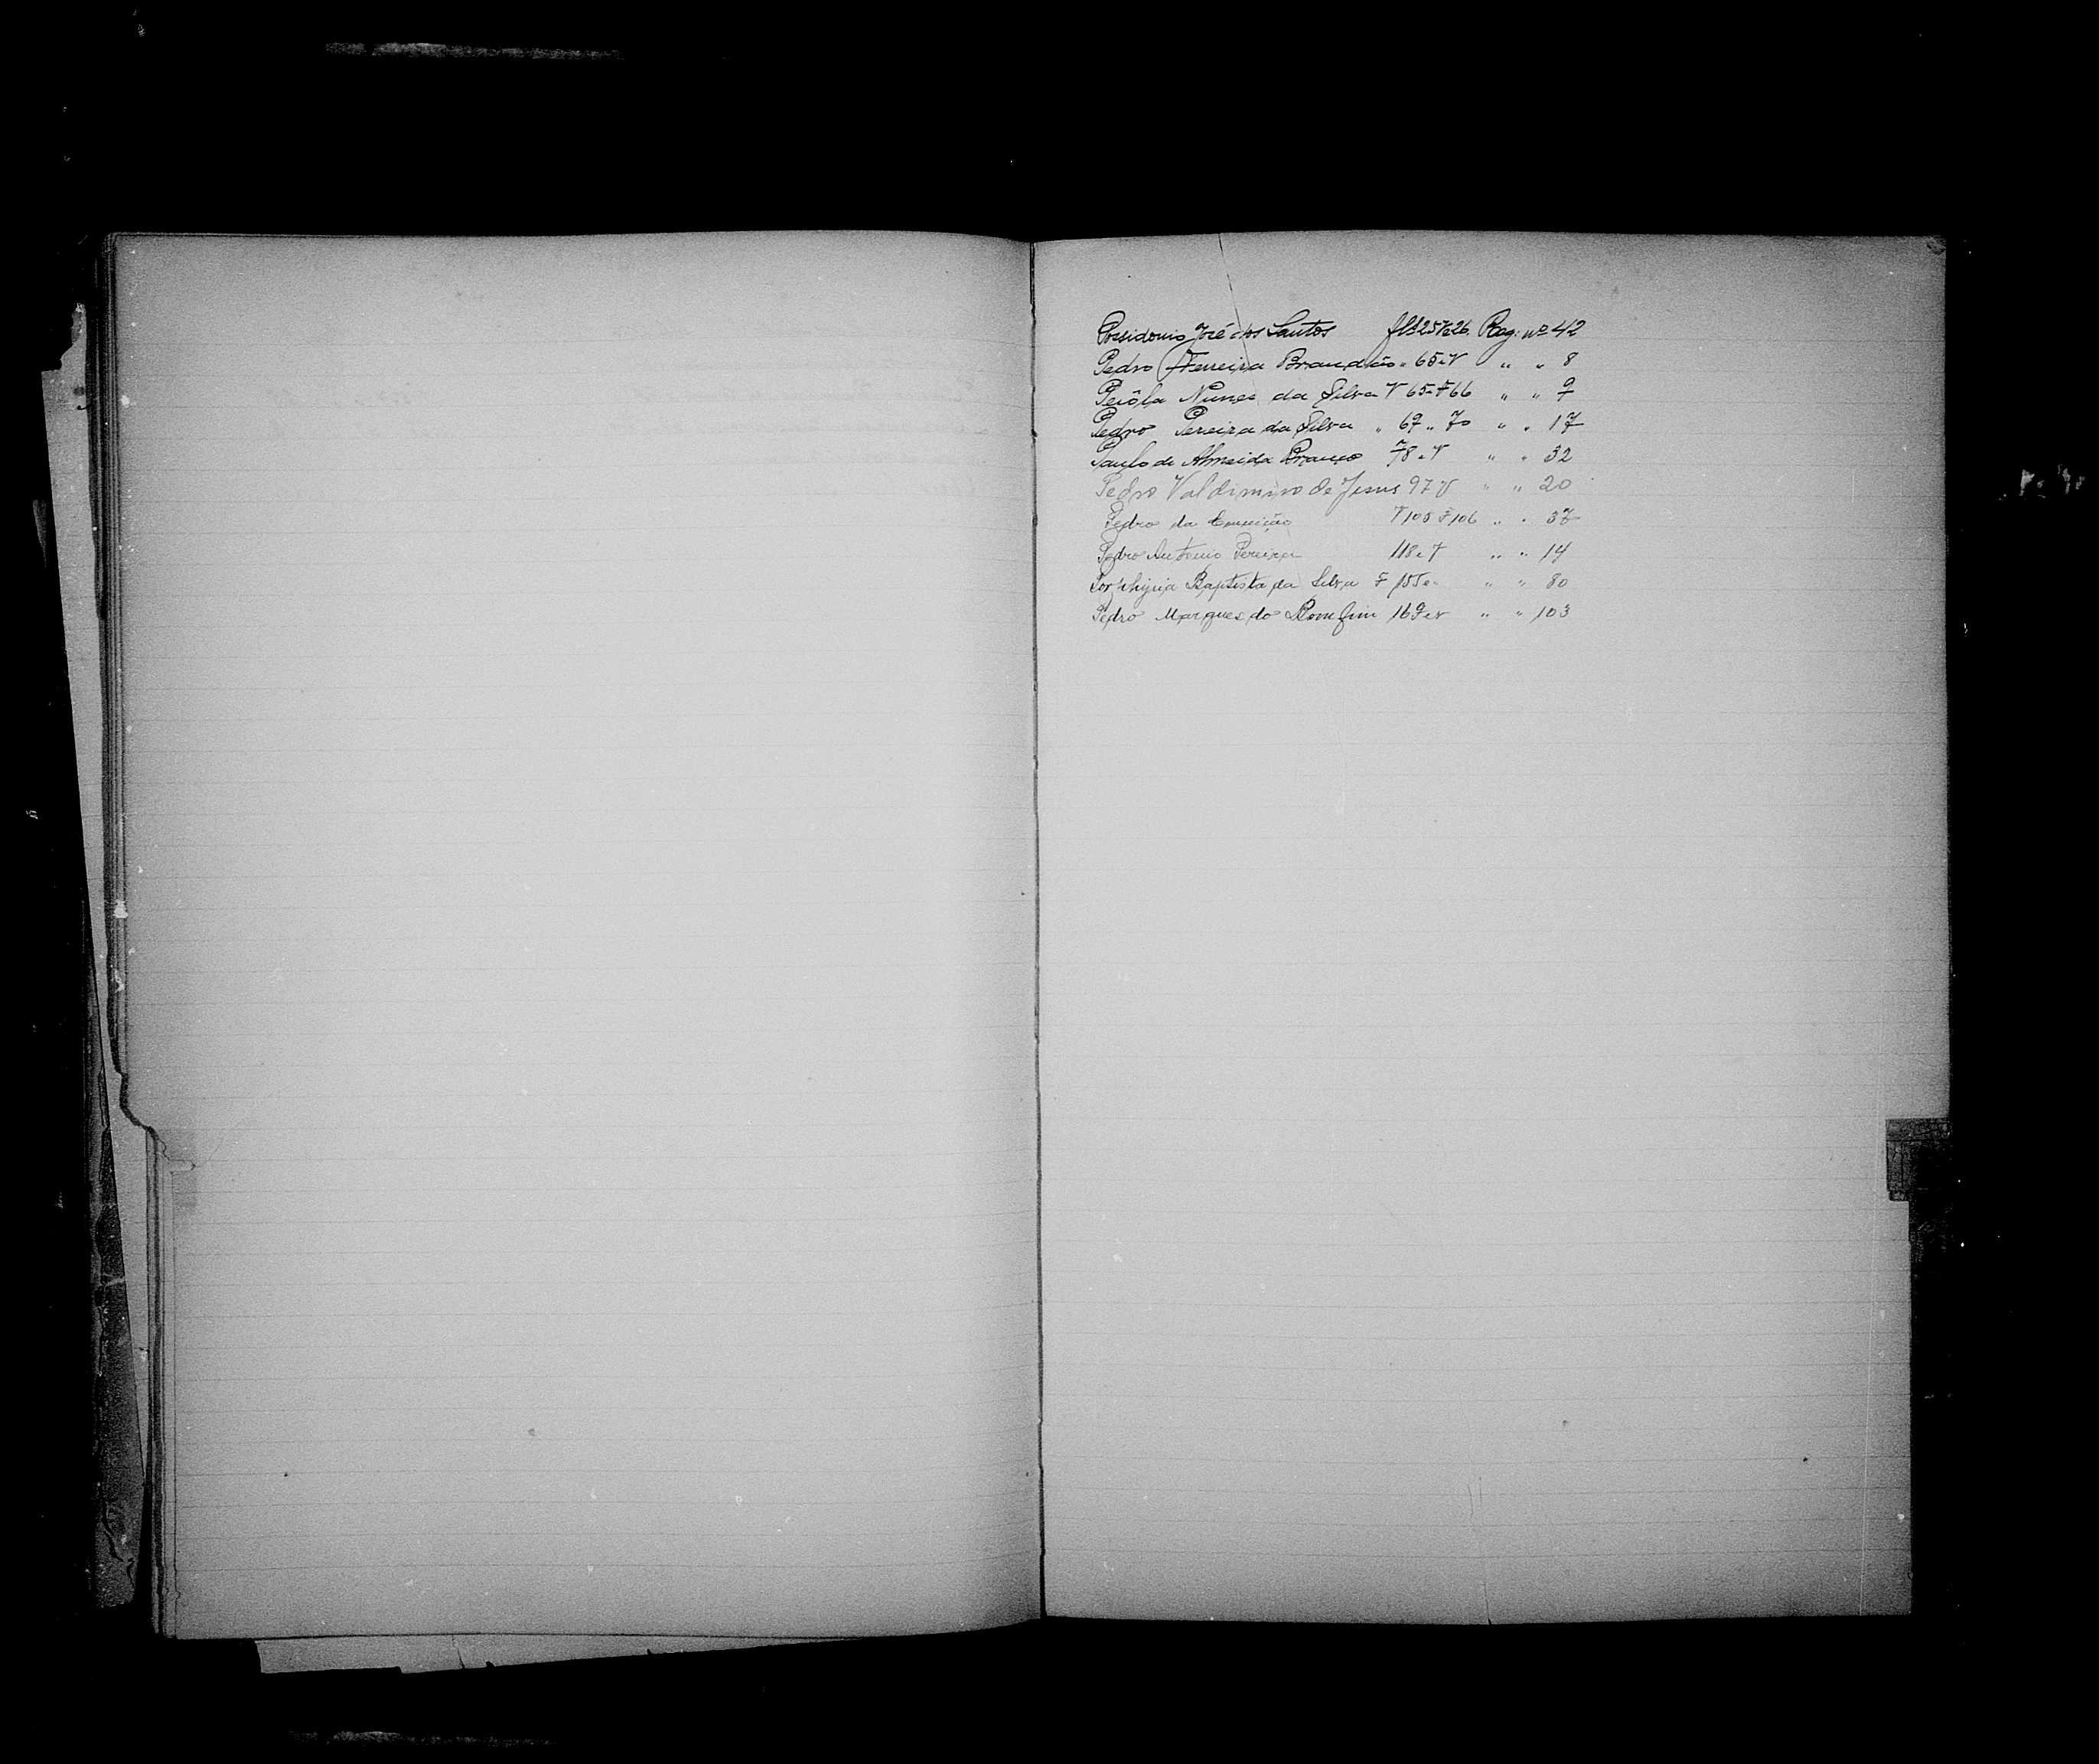 Possidonio José dos Santos fls 25 V 26 Reg: nº 42
Pedro Ferreira Brandão " 65 e V " " 8
Nunes da Silva V 65 e F 66 " " 9
Pedro Pereira da Silva " 69 " 70 " " 17
Paulo de Almeida Branco 78 e V " " 32
Pedro Valdimiro de Jesus 97 V " " 20
Pedro da Conceição V 105 F 106 " " 37
Pedro Antonio Pereira 118 e V " " 14
Porphiria Baptista da Silva F 155 e " " 80
Pedro Marques do Bomfim 169 e v " " 103